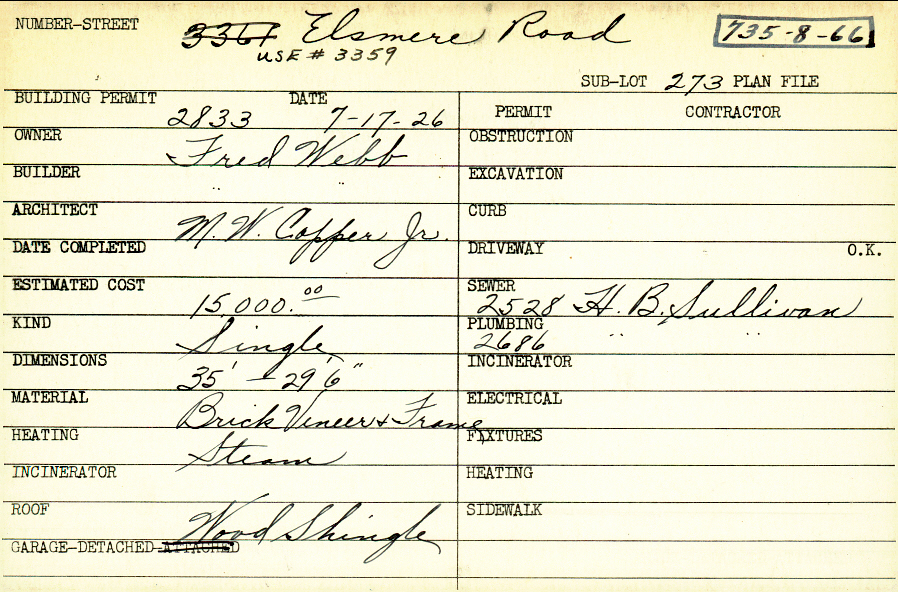 NUMBER-STREET 3361 Elsmere Road 735-8-66
USE # 3359
SUB-LOT 273 PLAN FILE
BUILDING PERMIT 2833 DATE 7-17-26
PERMIT CONTRACTOR
OWNER Fred Webb
OBSTRUCTION
BUILDER " "
EXCAVATION
ARCHITECT M. W. Copper Jr.
CURB
DATE COMPLETED
DRIVEWAY O.K.
ESTIMATED COST 15,000.00
SEWER 2528 H. B. Sullivan
KIND Single
PLUMBING 2686 " "
DIMENSIONS 35' - 29'6"
INCINERATOR
MATERIAL Brick Veneer + Frame
ELECTRICAL
HEATING Steam
FIXTURES
INCINERATOR
HEATING
ROOF Wood Shingle
SIDEWALK
GARAGE-DETACHED-ATTACHED